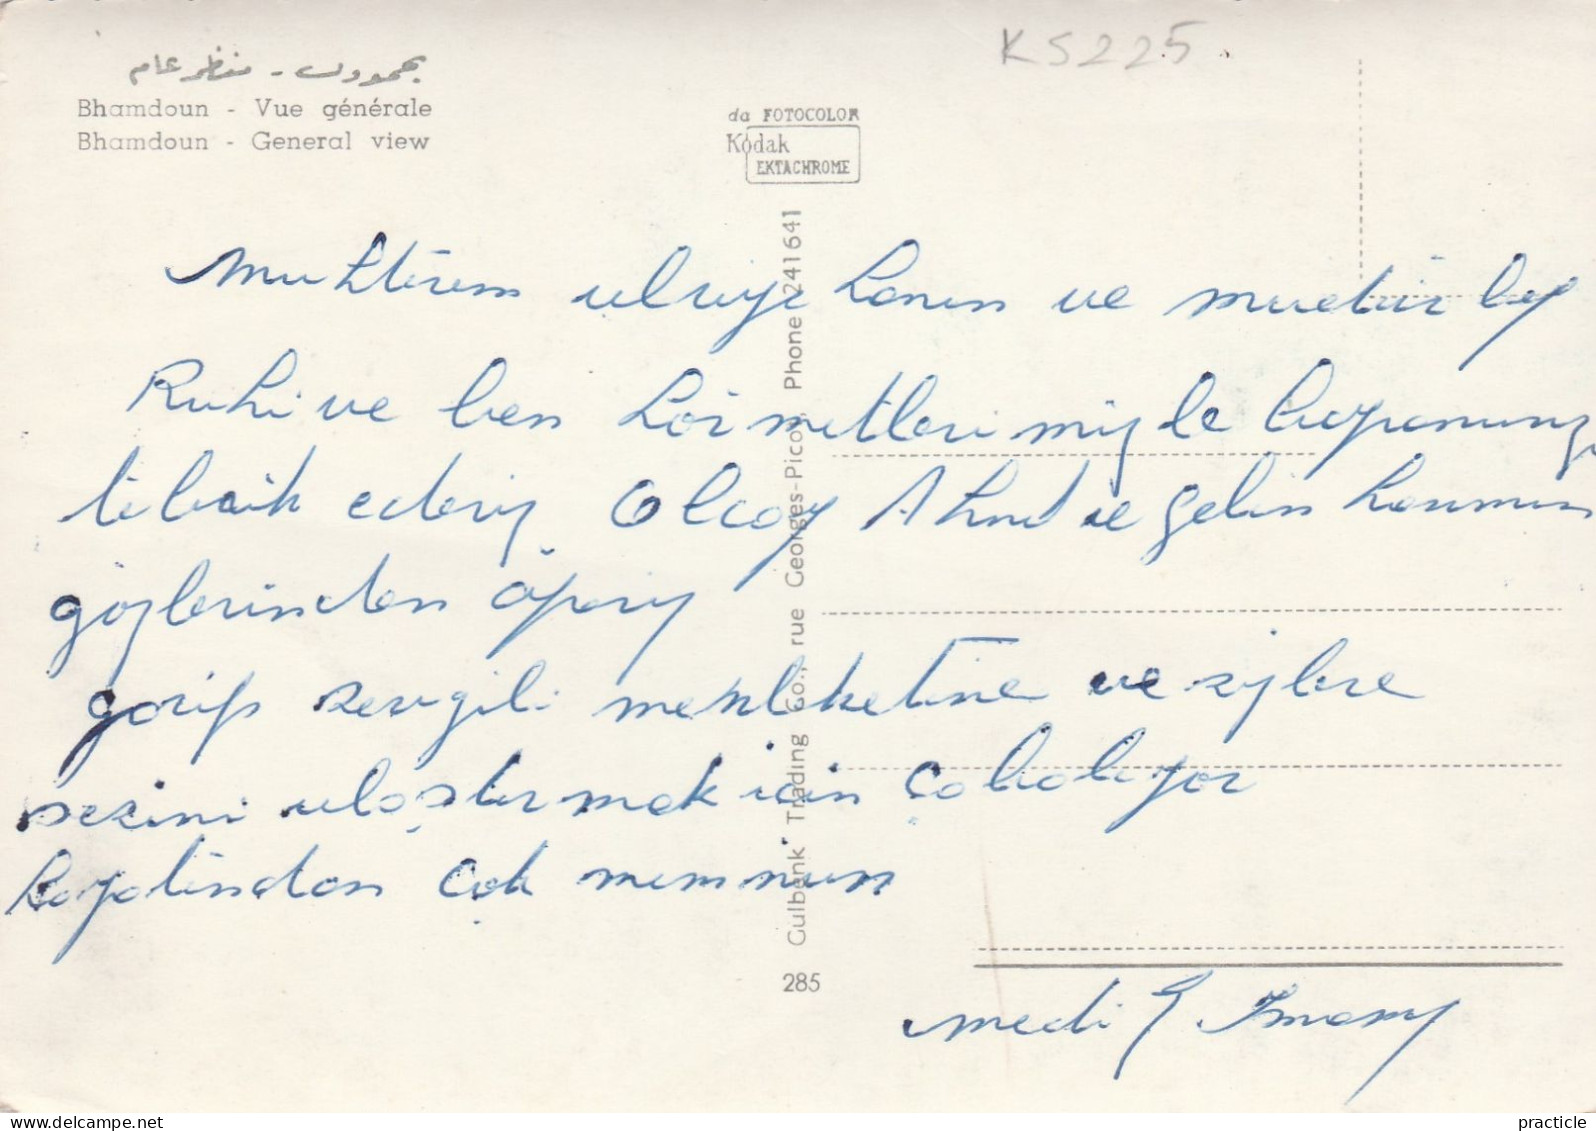 KS225
بحمدون - منظر عام
Bhamdoun - Vue générale
Bhamdoun - General view
da FOTOCOLOR
Kodak
EKTACHROME
Gulbenk Trading Co., rue Georges-Picot, Phone 241641
Muhterem ulviye Hanım ve muedür bey
Ruhi ve ben hörmetlerimizle bayramınızı
tebrik ederiz Olcay Ahmet ve gelin hanımın
gözlerinden öperiz
garip sevgili memleketine ve sizlere
sesini ulaştırmak için çabalıyor
hayatından çok memnun
285
medi Imamy
www.delcampe.net
practicle